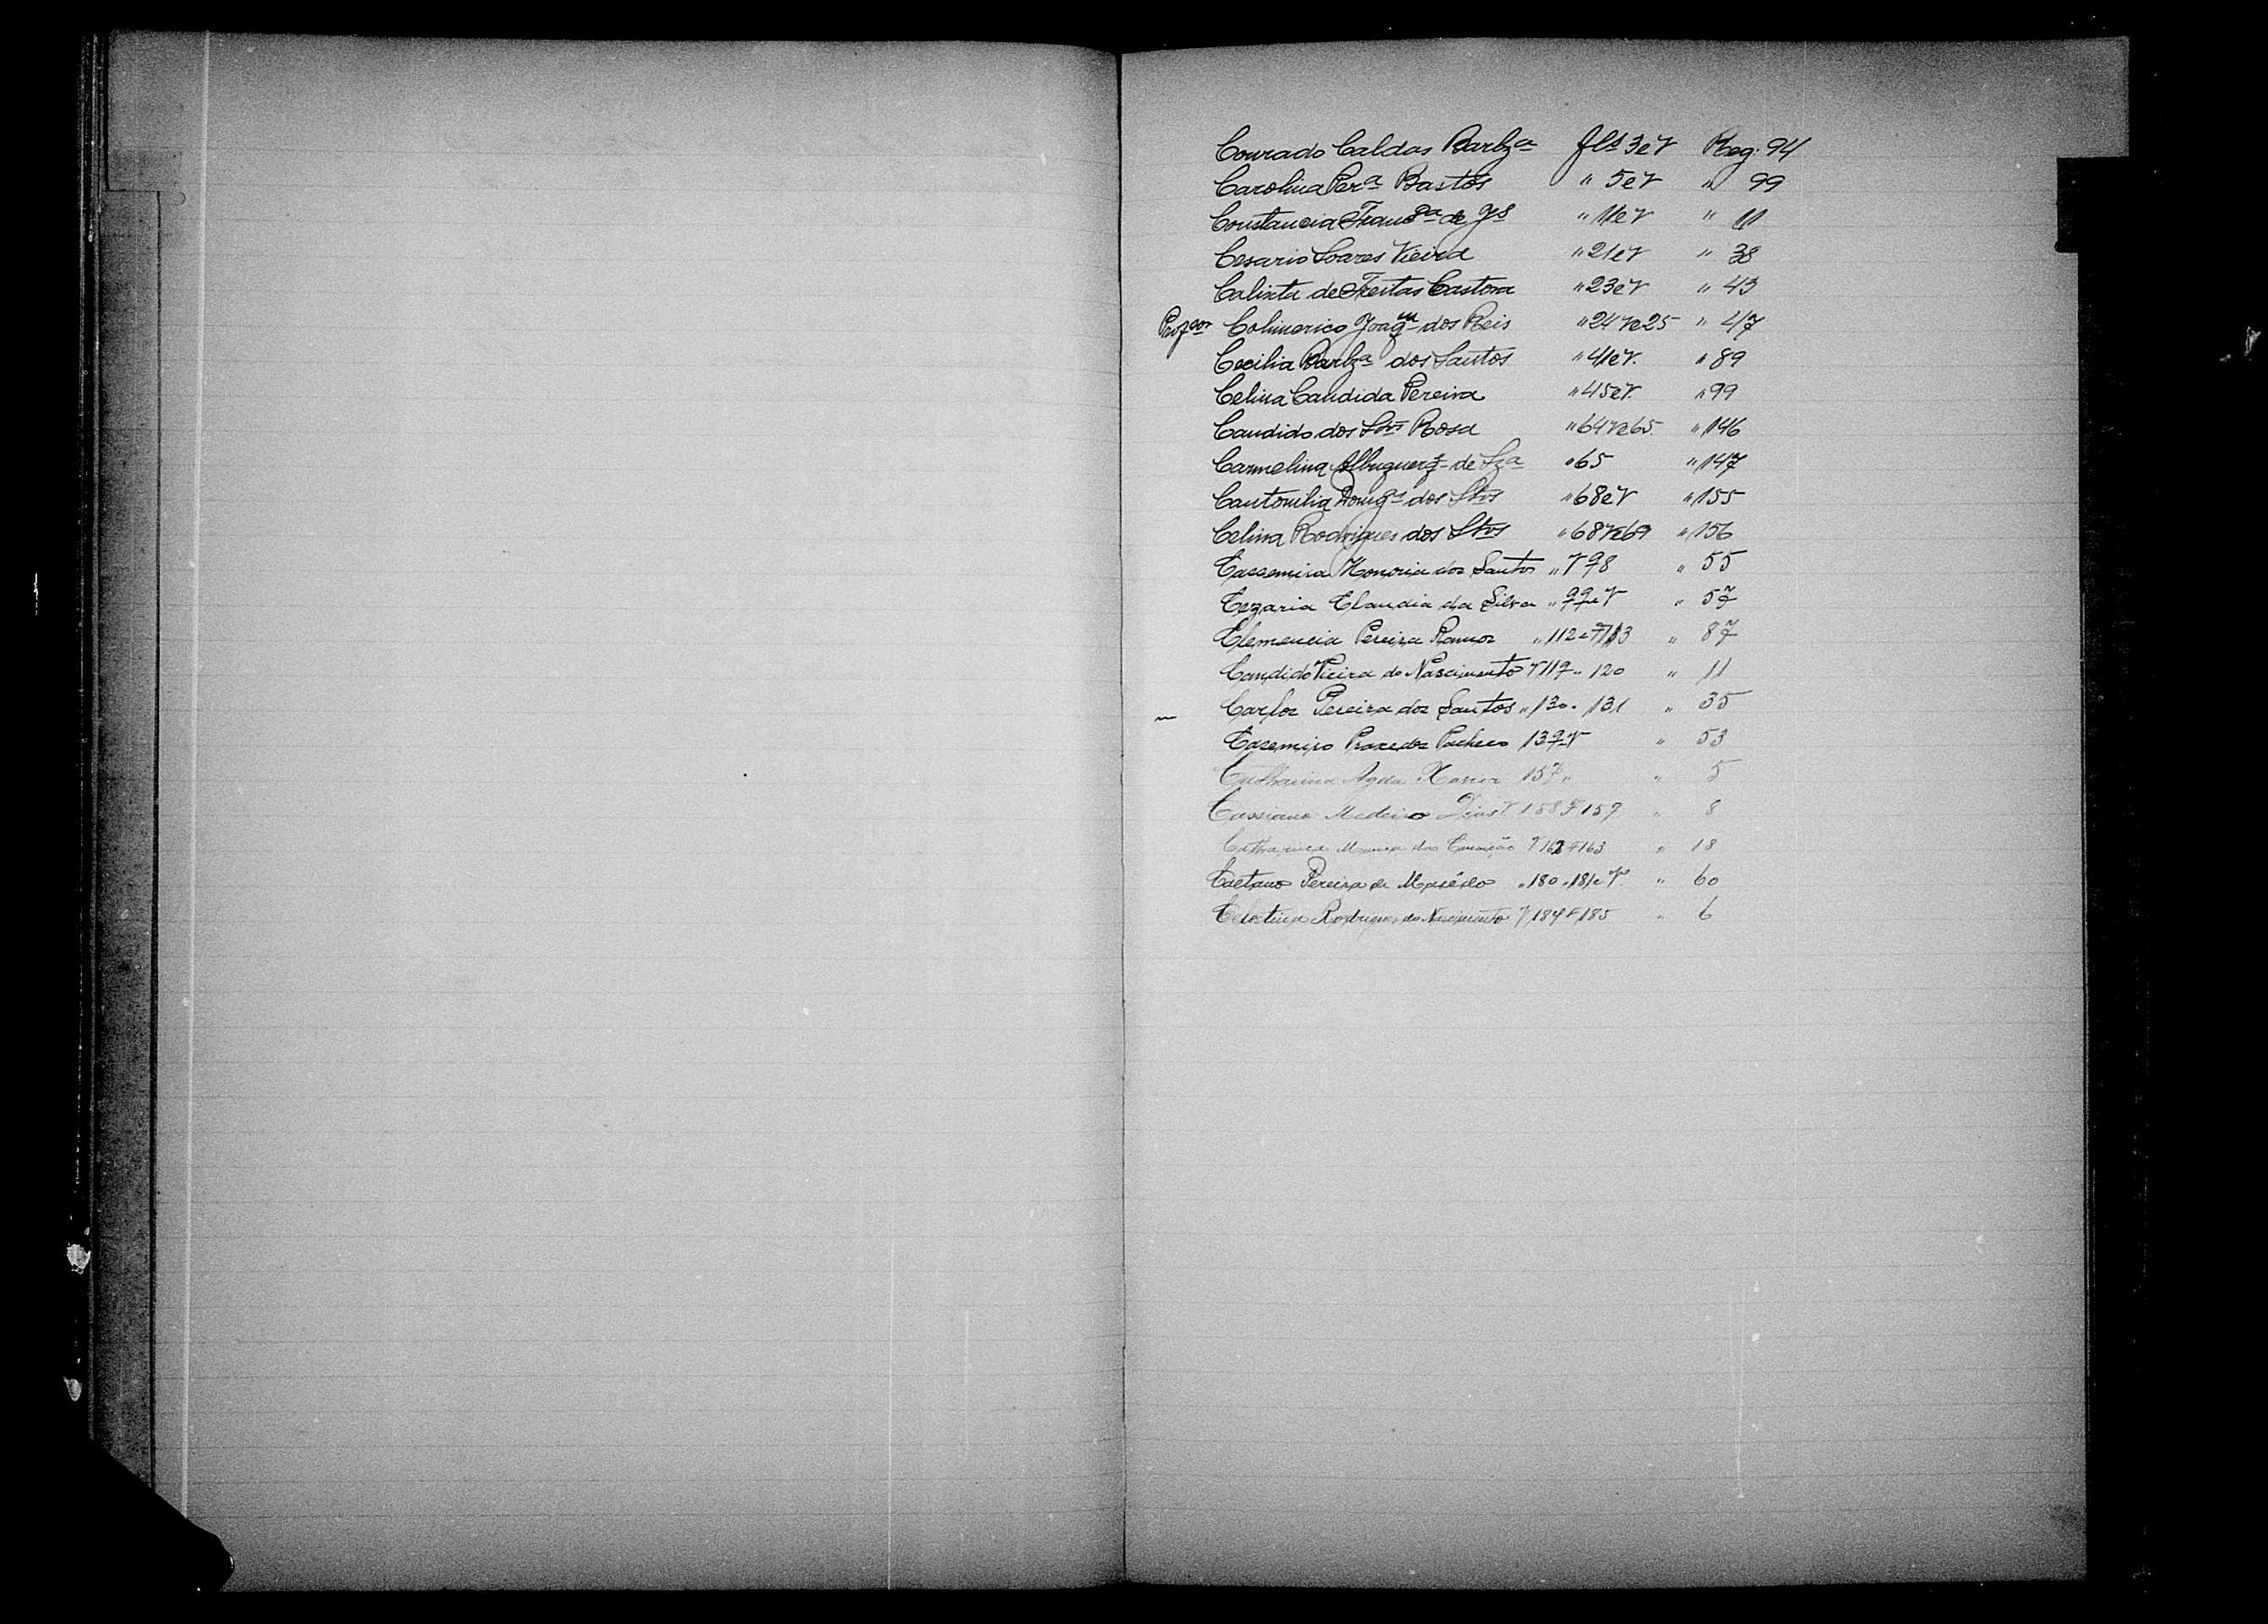 Conrado Caldas Barbza fls 3 e V Reg. 94
Carolina Pera Bastos " 5 e V " 99
Constancia Francca de Js " 11 e V " 11
Cesario Soares Vieira " 21 e V " 38
Calixta de Freitas Castora " 23 e V " 43
Profsor Colimerico Joaqm dos Reis " 24 V e 25 " 47
Cecilia Barbza dos Santos " 41 e V. " 89
Celina Candida Pereira " 45 e V. " 99
Candido dos Stos Rosa " 64 V e 65 " 146
Carmelina Albuquerq- de Sza " 65 " 147
Cantonilia Domgs dos Stos " 68 e V " 155
Celina Rodrigues dos Stos " 68 V e 69 " 156
Cassemira Honoria dos Santos " V 98 " 55
Cezaria Claudia da Silva " 99 e V " 57
Clemencia Pereira Ramos " 112 e 113 " 87
Candido Vieira do Nascimento V 119 " 120 " 11
Carlos Pereira dos Santos " 130 " 131 " 35
Casemiro Praxedes Pacheco 139 V " 53
Catharina Agda Xavier 157 " " 5
Cassiano Medeiro Dins V 158 F 159 " 8
Catharina da Conceição V 162 F 163 " 18
Caetano Pereira de Macêdo " 180 " 181 e V. " 60
Celestina Rodrigues do Nascimento V 184 F 185 " 6